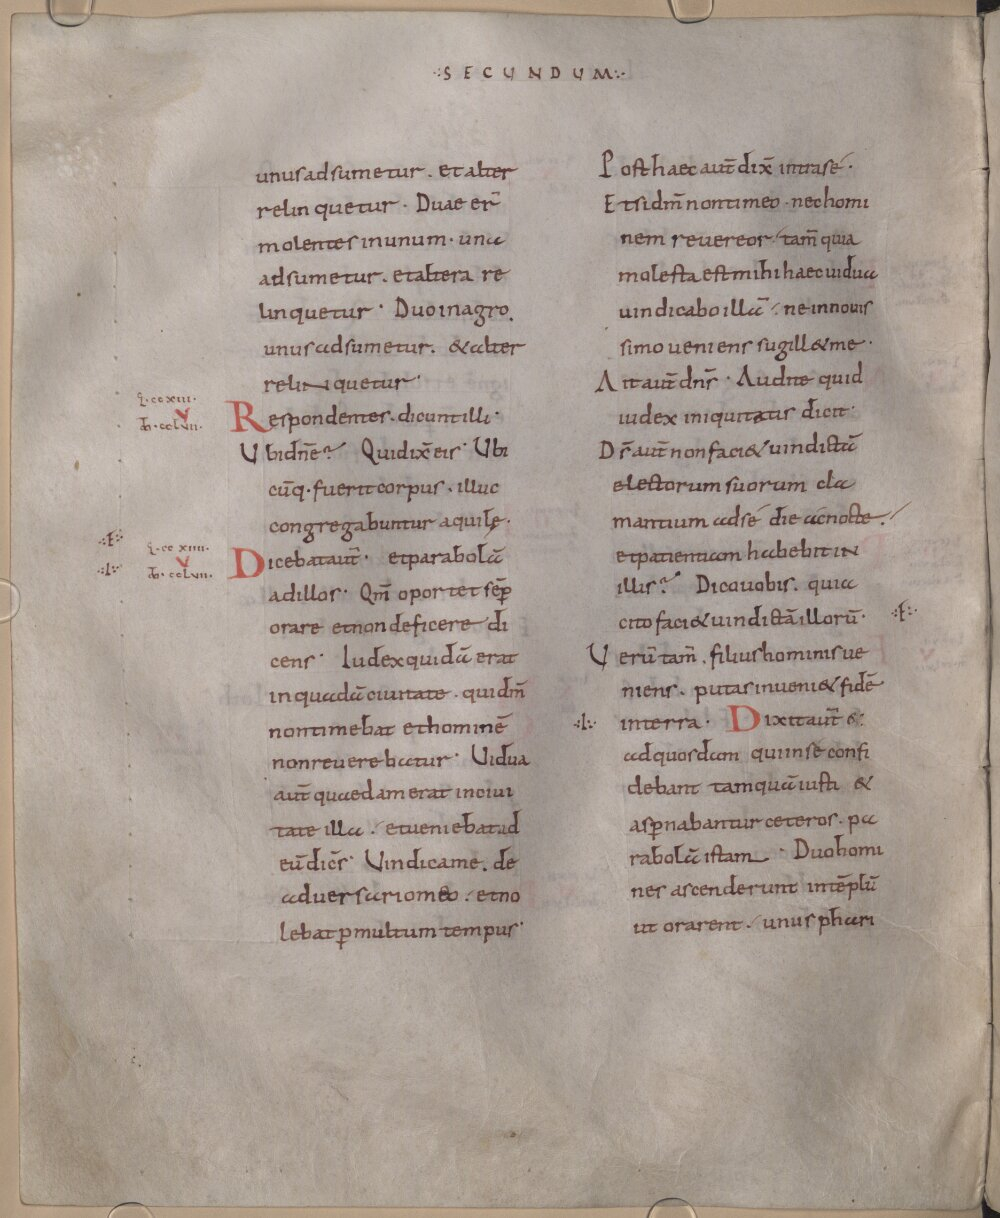 ·SECUNDUM·
unus adsumetur. et alter
relinquetur. Duae er̄
molentes in unum. una
adsumetur. et altera re
linquetur. Duo in agro.
unus adsumetur. & alter
relinquetur.
Respondentes. dicunt illi.
Ubi dn̄e? Quidix̄ eis. Ubi
cūq. fuerit corpus. illuc
congregabuntur aquilę.
Dicebat aut̄. et parabolā
ad illos. Qm̄ oportet sēp
orare et non deficere di
cens. Iudex quidā erat
in quadā civitate. qui dm̄
non timebat et hominē
non reverebatur. Vidua
aut̄ quaedam erat in civi
tate illa. et veniebat ad
eū dicēs. Vindica me. de
adversario meo. et no
lebat p̄ multum tempus.
Post haec aut̄ dix̄ intra sé.
Etsi dm̄ non timeo. nec homi
nem revereor. tam̄ quia
molesta est mihi haec vidua
vindicabo illā. ne in novis
simo veniens sugill& me.
Ait aut̄ dn̄s. Audite quid
iudex iniquitatis dicit.
Ds̄ aut̄ non faci& vindictā
electorum suorum cla
mantium ad sé die ac nocte.
et patientiam habebit in
illis? Dico vobis. quia
cito faci& vindictā illorū.
Verū tam̄. filius hominis ve
niens. putas inveni& fidē
in terra. Dixit aut̄ &
ad quosdam qui in sé confi
debant tamquā iusti &
asp̄nabantur ceteros. pa
rabolā istam. Duo homi
nes ascenderunt in tēplū
ut orarent. unus phari